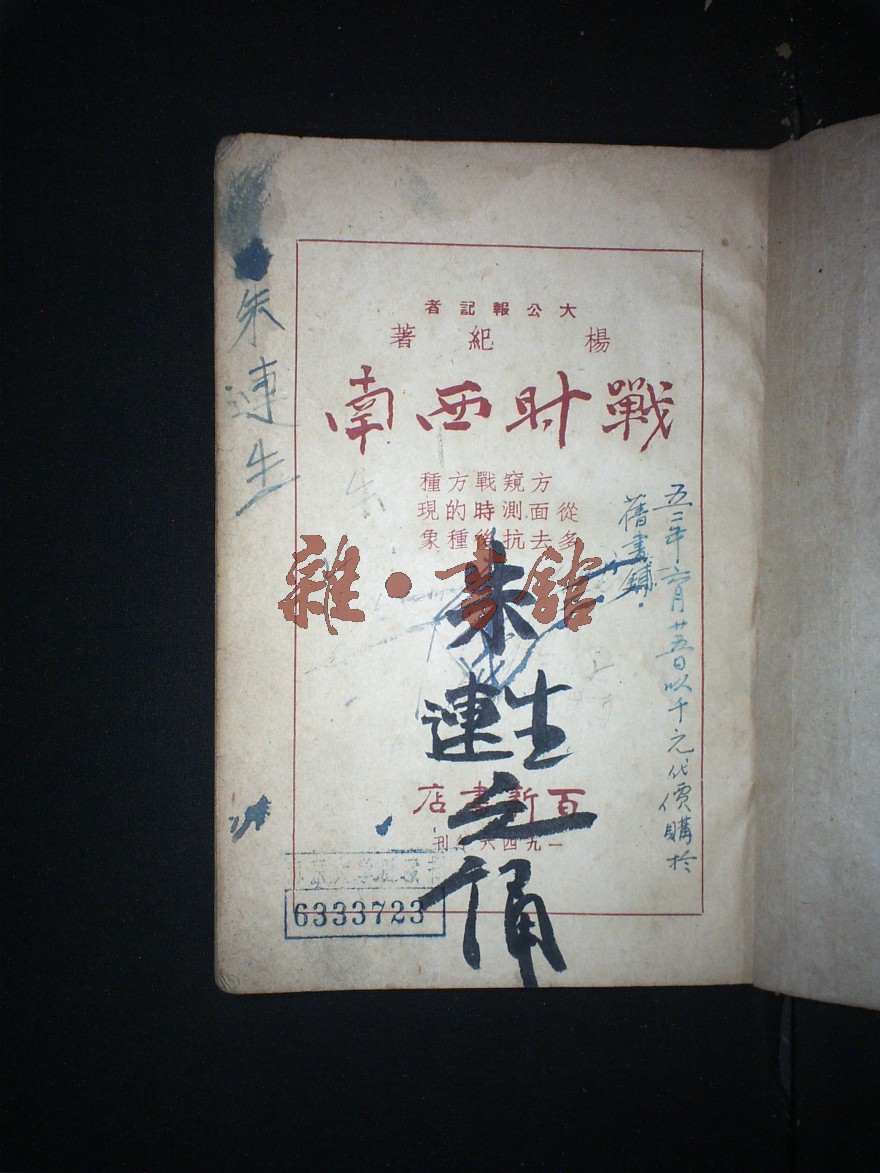 大公報記者
楊紀著
戰时西南
從多
方面去
窺測抗
戰時後
方的種
種現象
百新書店
一九四六年刊
朱連生
朱連生之
五二年六月廿五日以千元代價購於
舊書鋪.
6333723
雜·書館